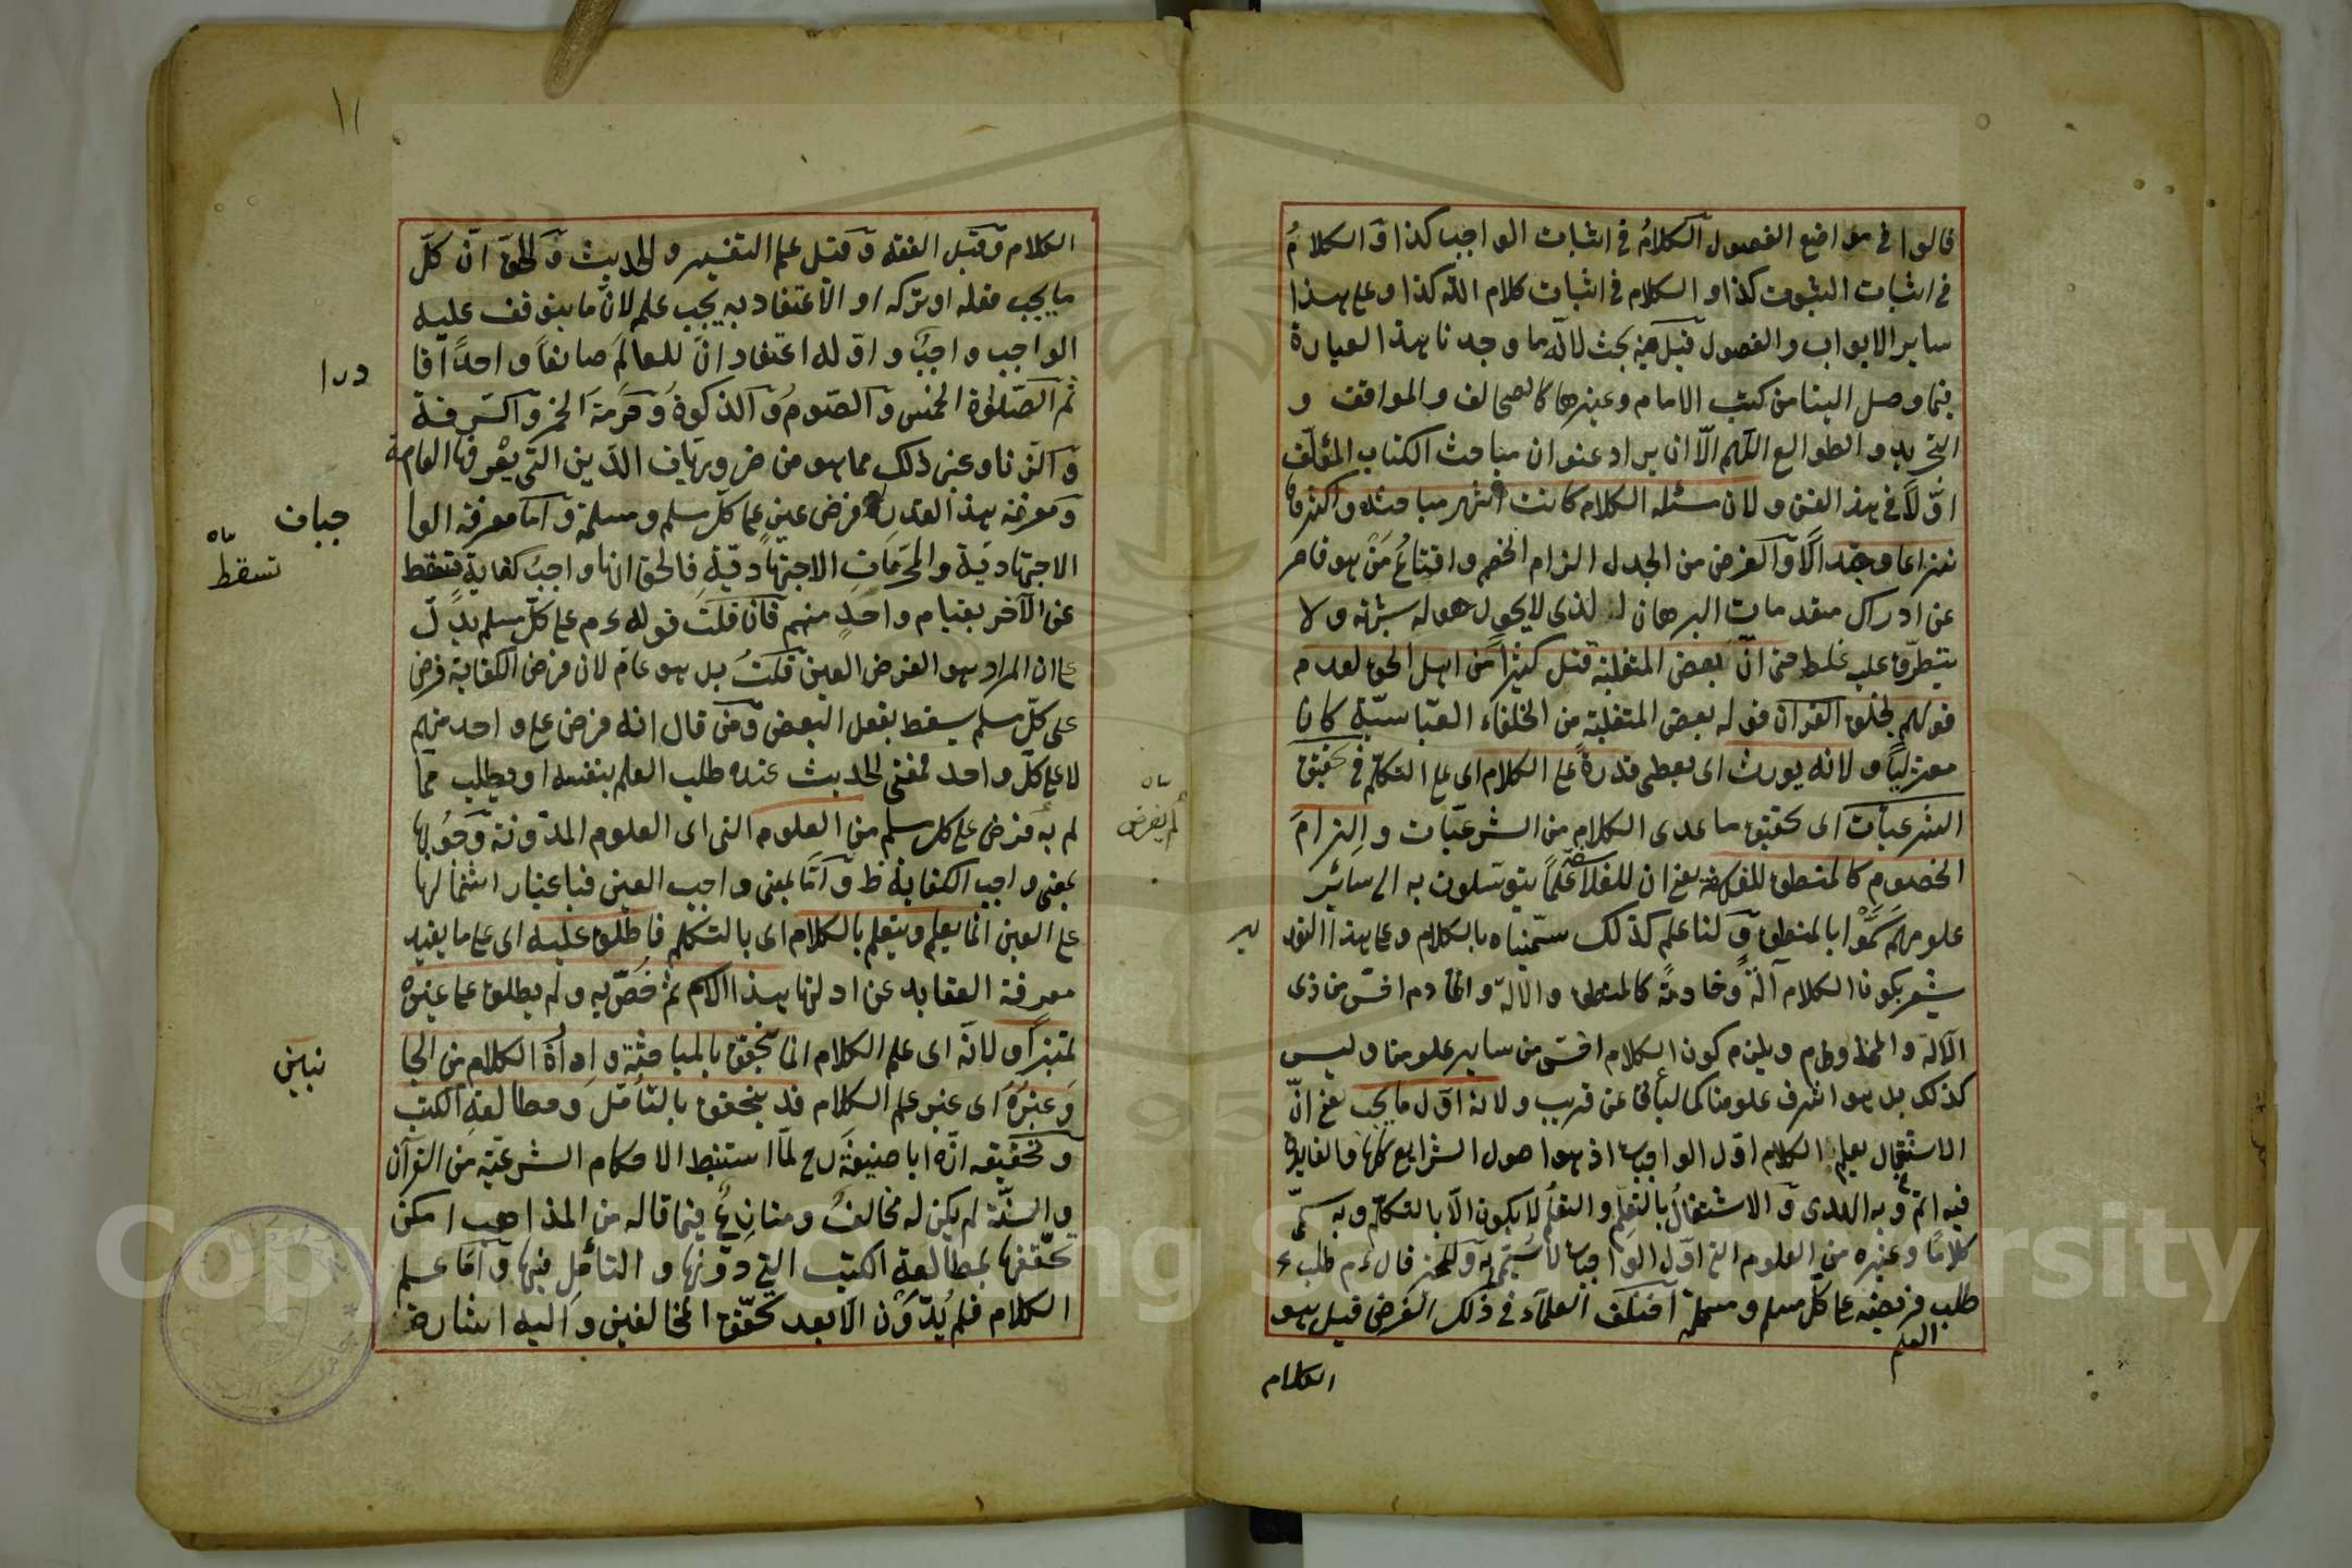 قالوا في مواضع الفصول الكلامُ في اثبات الواجب كذا وَالكلامُ
في اثبات النبوت كذا و الكلام في اثبات كلام الله كذا وعلى هذا
ساير الابواب والفصول قيل فيه بحث لانّه ما وجدنا هذا العبارة
فيما وصل الينا من كتب الامام وغيرها كالصحائف والمواقف و
التجريد والطوالع اللّهم الّا ان يراد عنوان مباحث الكتاب المؤلّف
اوّلاً في هذا الفن ولان مسئلة الكلام كانت اشهر مباحثه واكثرها
نزاعا وجدالًا وَالغرض من الجدل الزام الخصم واقناعُ مَن هو قاصر
عن ادراك مقدمات البرهان الذى لا يحول حوله شبهة ولا
يتطرّق عليه غلط حتى انّ بعض المتغلبة قتل كثيرًا من اهل الحق لعدم
قولهم بخلق القرآن قوله بعض المتغلبة من الخلفاء العبّاسيّة كان
معتزليًا ولانه يورث اى يعطى قدرةً على الكلام اى على التكلّم في تحقيق
الشرعيّات اى تحقيق ما عدى الكلام من الشرعيّات و الزامَ
الخصوم كالمنطق للفلاسفة يعني ان للفلاسفة علماً يتوسّلون به الى سائر
علومهم سَمَّوْا بالمنطق وَ لنا علم كذلك سمّيناه بالكلام وعلى هذا التقد
ير
يشعر بكون الكلام آلةً وخادمةً كالمنطق والآلة والخادم اخسّ من ذى
الآلة والمخدوم ويلزم كون الكلام اخسّ من ساير علومنا وليس
كذلك بل هو اشرف علومنا كما ليأتى عن قريب ولانه اوّل ما يجب يعني انّ
الاشتغال بعلم الكلام اوّل الواجبات اذ هو اصول الشرايع كلّها فالفايدة
فيه اتمّ وبه البدى وَ الاشتغالُ بالتعلّم والتعلّم لا يكون الّا بالتكلّم وبه سمّى
كلامًا وغيره من العلوم التى اوّل الواجبات لم يسمّ به وَ للخبر قال ءم طلب
طلب فريضة على كلّ مسلم ومسلمة اختلف العلمآء في ذلك الفرض قيل هو
العلم
الكلام
١١
الكلام وَ قيل الفقه وَ قيل علم التفسير والحديث وَالحقّ انّ كلّ
ما يجب فعله او تركه او الاعتقاد به يجب علمه لانّ ما يتوقف عليه
الواجب واجبٌ و اوّله اعتقاد انّ للعالَم صانعًا واحدًا قا
درا
ثم الصّلوٰة الخمس وَ الصّومُ وَ الذكوةُ وَ حرمةَ الخمر وَ السّرقة
وَ الزّنا وغير ذلك مما هو من ضروريّات الدّين التى يعْرفها العامة
ومعرفة هذا القدر فرض عينٍ على كلّ مسلم ومسلمة وَ امّا معرفة الوا
جبات
الاجتهاديّة والمحرّماتِ الاجتهاديّة فالحق انها واجبُ كفاية فتسقط
تسقط
عن الآخر بقيام واحدٍ منهم فان قلتَ قوله ءم على كلّ مسلم يدلّ
على ان المراد هو الفرض العين قلتُ بل هو عامّ لان فرض الكفاية فرض
على كلّ مسلم يسقط بفعل البعض وَمن قال انه فرض على واحد منهم
لا على كلّ واحد فمعنى الحديث عنده طلب العلم بنفسه او يطلب ممّا
لم يفرض
لم به فرض على كل مسلم من العلوم التى اى العلوم المدوّنة وَجُوبُها
بمعنى واجب الكفاية ظ وَ امّا بمعنى واجب العين فباعتبار اشتمالها
على العين انّما يعلم ويتعلم بالكلام اى بالتكلم فاطلق عليه اى على ما يفيد
معرفة العقايد عن ادلتها هذا الاسم ثم خُصّ به ولم يطلق على غيره
تميّزاً ولانّه اى علم الكلام انما يتحقق بالمباحثة و ادارة الكلام من الجا
نبين
وَ غيرُه اى غير علم الكلام قد يتحقق بالتأمّل وَ مطالعةِ الكتب
وَ تحقيقه انّ ابا حنيفةَ رح لمّا استنبط الاحكام الشرعيّة من القرآن
والسنّة لم يكن له مخالفٌ ومنازعٌ فيما قاله من المذاهب امكن
تحقّقها بمطالعة الكتب التي دوّنها و التأمّل فيها وَ امّا علم
الكلام فلم يُدوَّن الّا بعد تحقّق المخالفين وَ اليه اشارة